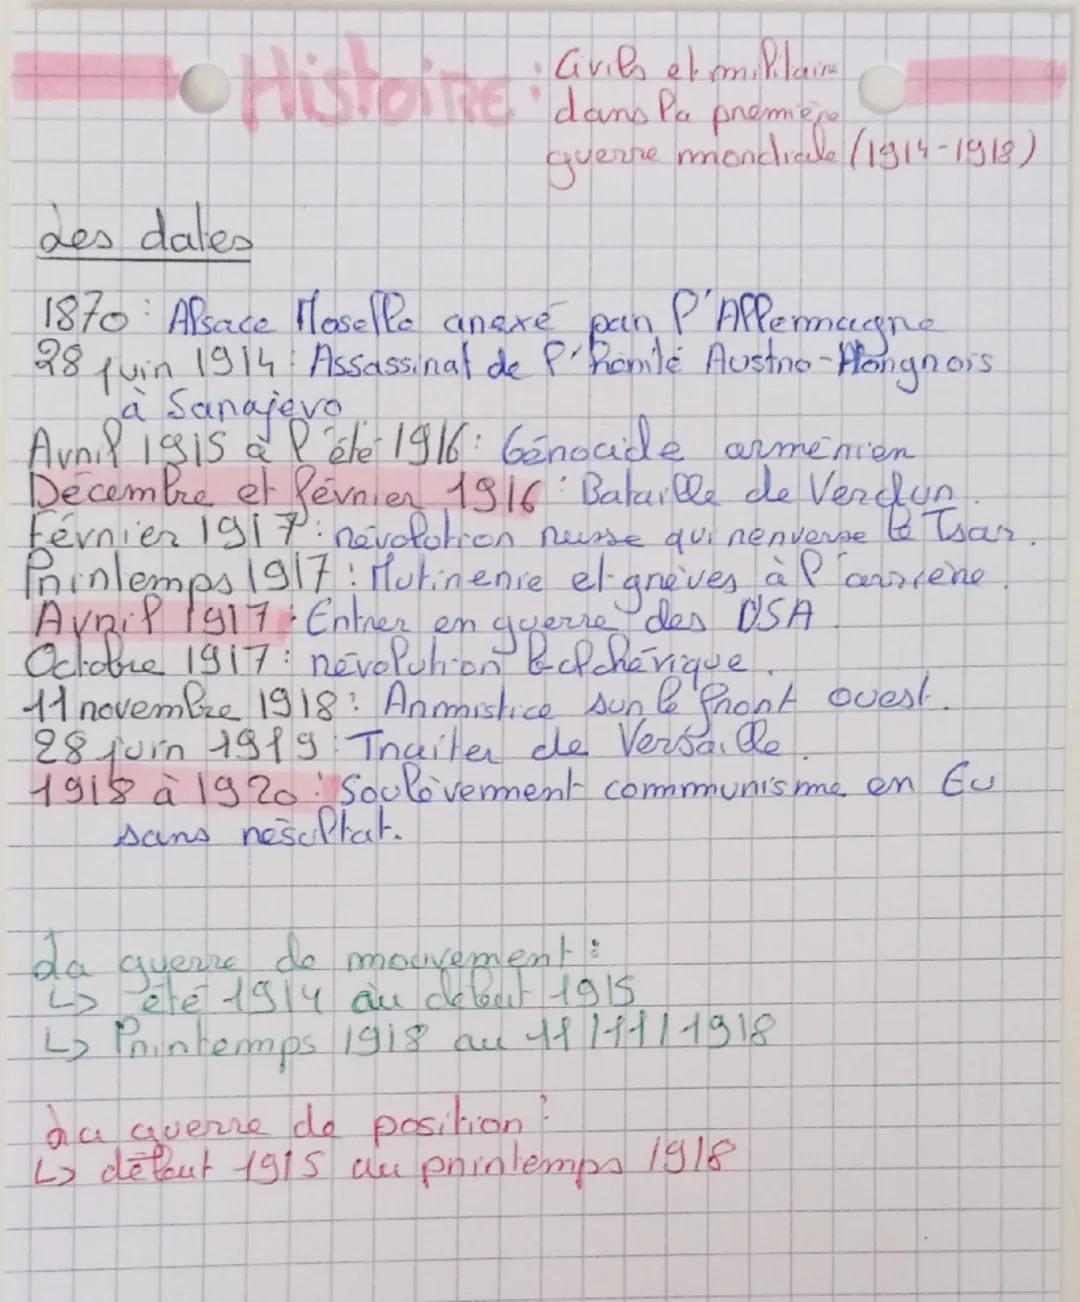 Histoire : Civils et militaire
dans la première
guerre mondiale (1914-1918)
Les dates
1870 : Alsace Moselle anexé par l'Allermagne
28 juin 1914 : Assassinat de l'héritié Austro-Hongrois
à Sarajevo
Avril 1915 à l'été 1916 : Génocide arménien
Décembre et février 1916 : Bataille de Verdun.
Février 1917 : révolotion russe qui renverse le Tsar.
Printemps 1917 : Mutinerie et grèves à l'arrière.
Avril 1917 : Entrer en guerre des USA.
Octobre 1917 : révolution bolchévique.
11 novembre 1918 : Armistice sur le front ouest.
28 juin 1919 : Traiter de Versaille.
1918 à 1920 : Soulèvement communisme en Eu
sans résultat.
La guerre de mouvement :
↳ été 1914 au début 1915
↳ Printemps 1918 au 11/11/1918
La guerre de position :
↳ début 1915 au printemps 1918